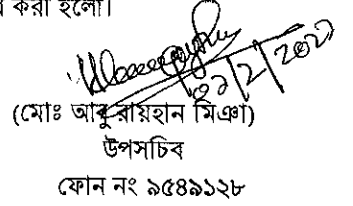 করা হলো।
(মোঃ আবু রায়হান মিঞা)
উপসচিব
ফোন নং ৯৫৪৯১২৮